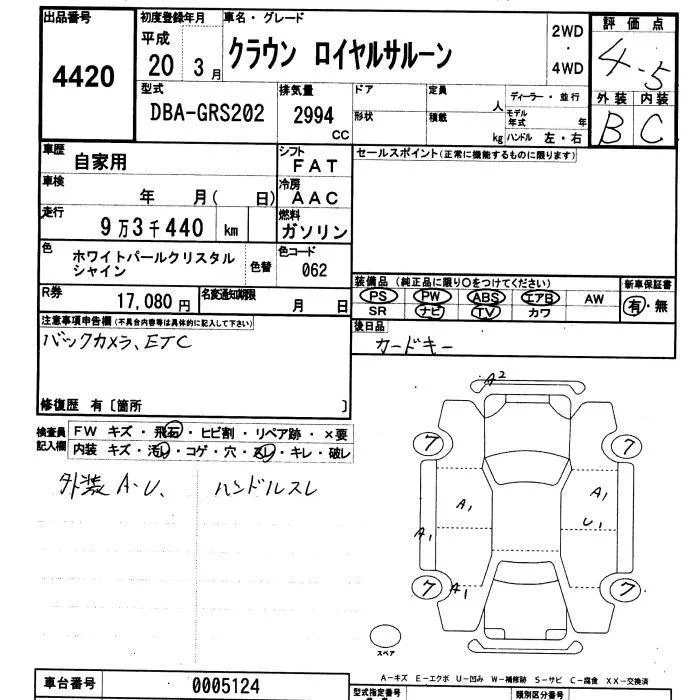 出品番号 初度登録年月 車名・グレード 評価点
4420 平成 20 3月 クラウン ロイヤルサルーン 2WD・4WD 4.5
型式 排気量 ドア 定員 人 ディーラー・並行 外装 内装
DBA-GRS202 2994 CC 形状 積載 kg モデル年式 年 ハンドル 左・右 B C
車歴 自家用 シフト FAT セールスポイント(正常に機能するものに限ります)
車検 年 月( 日) 冷房 AAC
走行 9万3千440 km 燃料 ガソリン
色 ホワイトパールクリスタルシャイン 色替 色コード 062
装備品 (純正品に限り○をつけてください) 新車保証書
R券 17,080円 名変通知期限 月 日 PS PW ABS エアB AW 有・無
SR ナビ TV カワ
注意事項申告欄(不具合内容等は具体的に記入して下さい) 後日品
バックカメラ、ETC カードキー
修復歴 有〔箇所 〕
検査員記入欄 FW キズ・飛石・ヒビ割・リペア跡・×要
内装 キズ・汚れ・コゲ・穴・スレ・キレ・破レ
外装 A・U、 ハンドルスレ
A2
7 7
A1 A1
A1 U1
7 A1 7
スペア
A－キズ E－エクボ U－凹み W－補修跡 S－サビ C－腐食 XX－交換済
車台番号 0005124 型式指定番号 類別区分番号